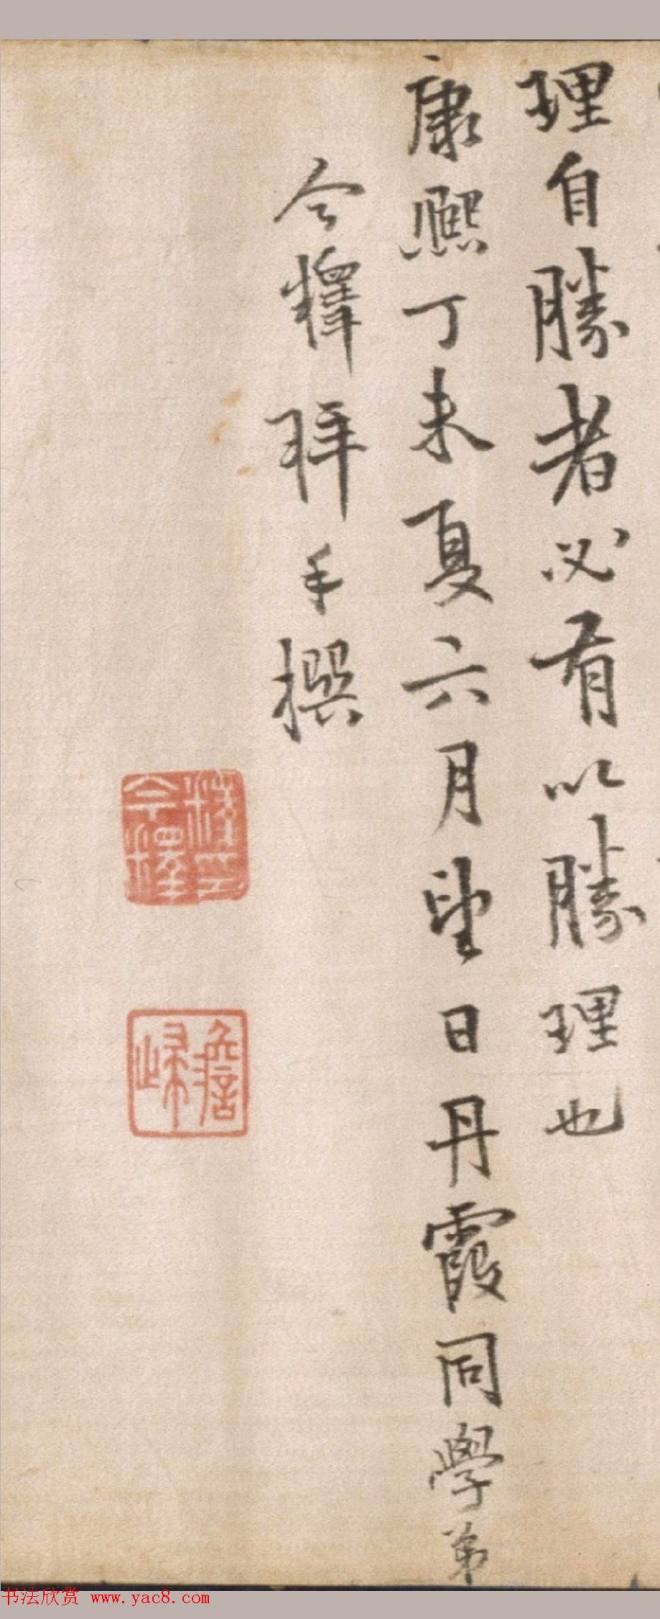 理自勝者必有以勝理也
康熈丁未夏六月望日丹霞同學弟
今釋拜手撰
今釋
澹歸
书法欣赏 www.yac8.com